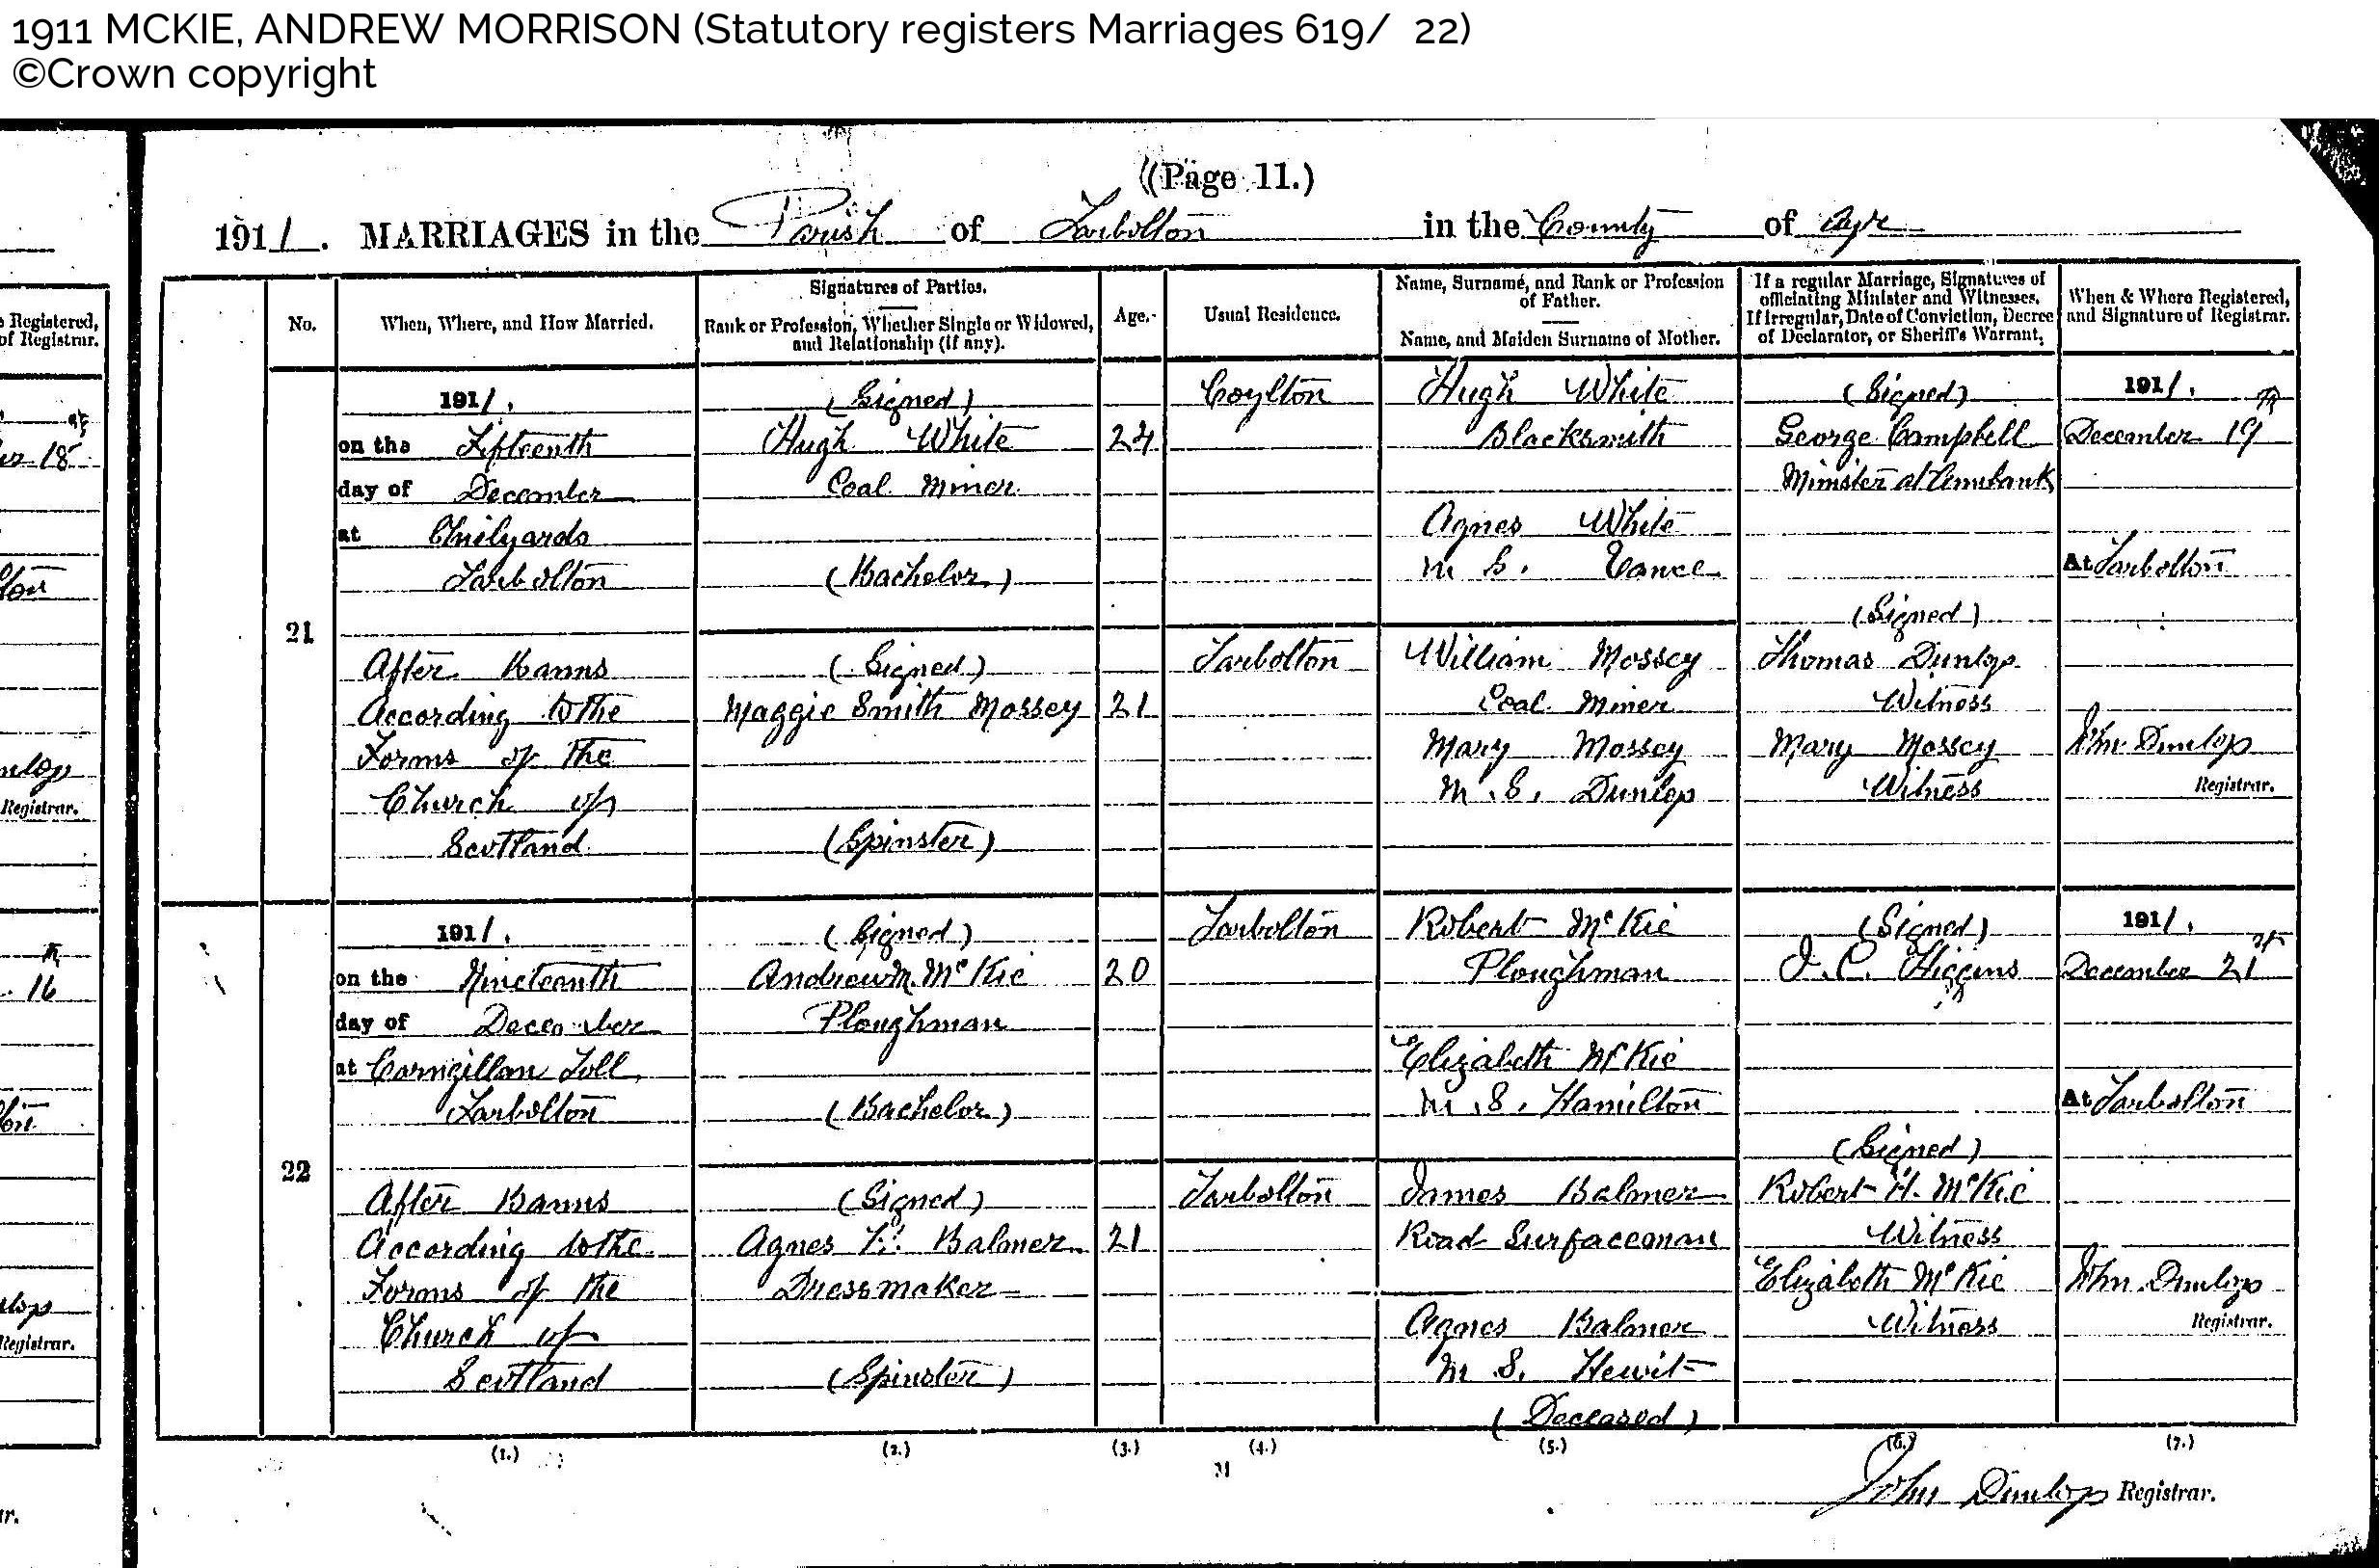 1911 MCKIE, ANDREW MORRISON (Statutory registers Marriages 619/ 22)
©Crown copyright
(Page 11.)
1911. MARRIAGES in the Parish of Tarbolton in the County of Ayr
No.
When, Where, and How Married.
Signatures of Parties.
Rank or Profession, Whether Single or Widowed,
and Relationship (if any).
Age.
Usual Residence.
Name, Surname, and Rank or Profession
of Father.
Name, and Maiden Surname of Mother.
If a regular Marriage, Signatures of
officiating Minister and Witnesses.
If irregular, Date of Conviction, Decree
of Declarator, or Sheriff's Warrant.
When & Where Registered,
and Signature of Registrar.
21
1911.
on the Fifteenth
day of December
at
Tarbolton
After Banns
According to the
Forms of the
Church of
Scotland
(Signed)
Hugh White
Coal Miner
(Bachelor)
(Signed)
Maggie Smith Mossey
(Spinster)
24
21
Coylton
Tarbolton
Hugh White
Blacksmith
Agnes White
M.S. Vance
William Mossey
Coal Miner
Mary Mossey
M.S. Dunlop
(Signed)
George Campbell
Minister at Annbank
(Signed)
Thomas Dunlop
Witness
Mary Mossey
Witness
1911.
December 19th
At Tarbolton
Jhn. Dunlop
Registrar.
22
1911.
on the Nineteenth
day of December
at Carngillan Toll
Tarbolton
After Banns
According to the
Forms of the
Church of
Scotland
(Signed)
Andrew M. McKie
Ploughman
(Bachelor)
(Signed)
Agnes Balmer
Dressmaker
(Spinster)
20
21
Tarbolton
Tarbolton
Robert McKie
Ploughman
Elizabeth McKie
M.S. Hamilton
James Balmer
Road Surfaceman
Agnes Balmer
M.S. Hewit
(Deceased)
(Signed)
J. C. Higgins
(Signed)
Robert H. McKie
Witness
Elizabeth McKie
Witness
1911.
December 21st
At Tarbolton
Jhn. Dunlop
Registrar.
(1.) (2.) (3.) (4.) (5.) (6.) (7.)
John Dunlop Registrar.